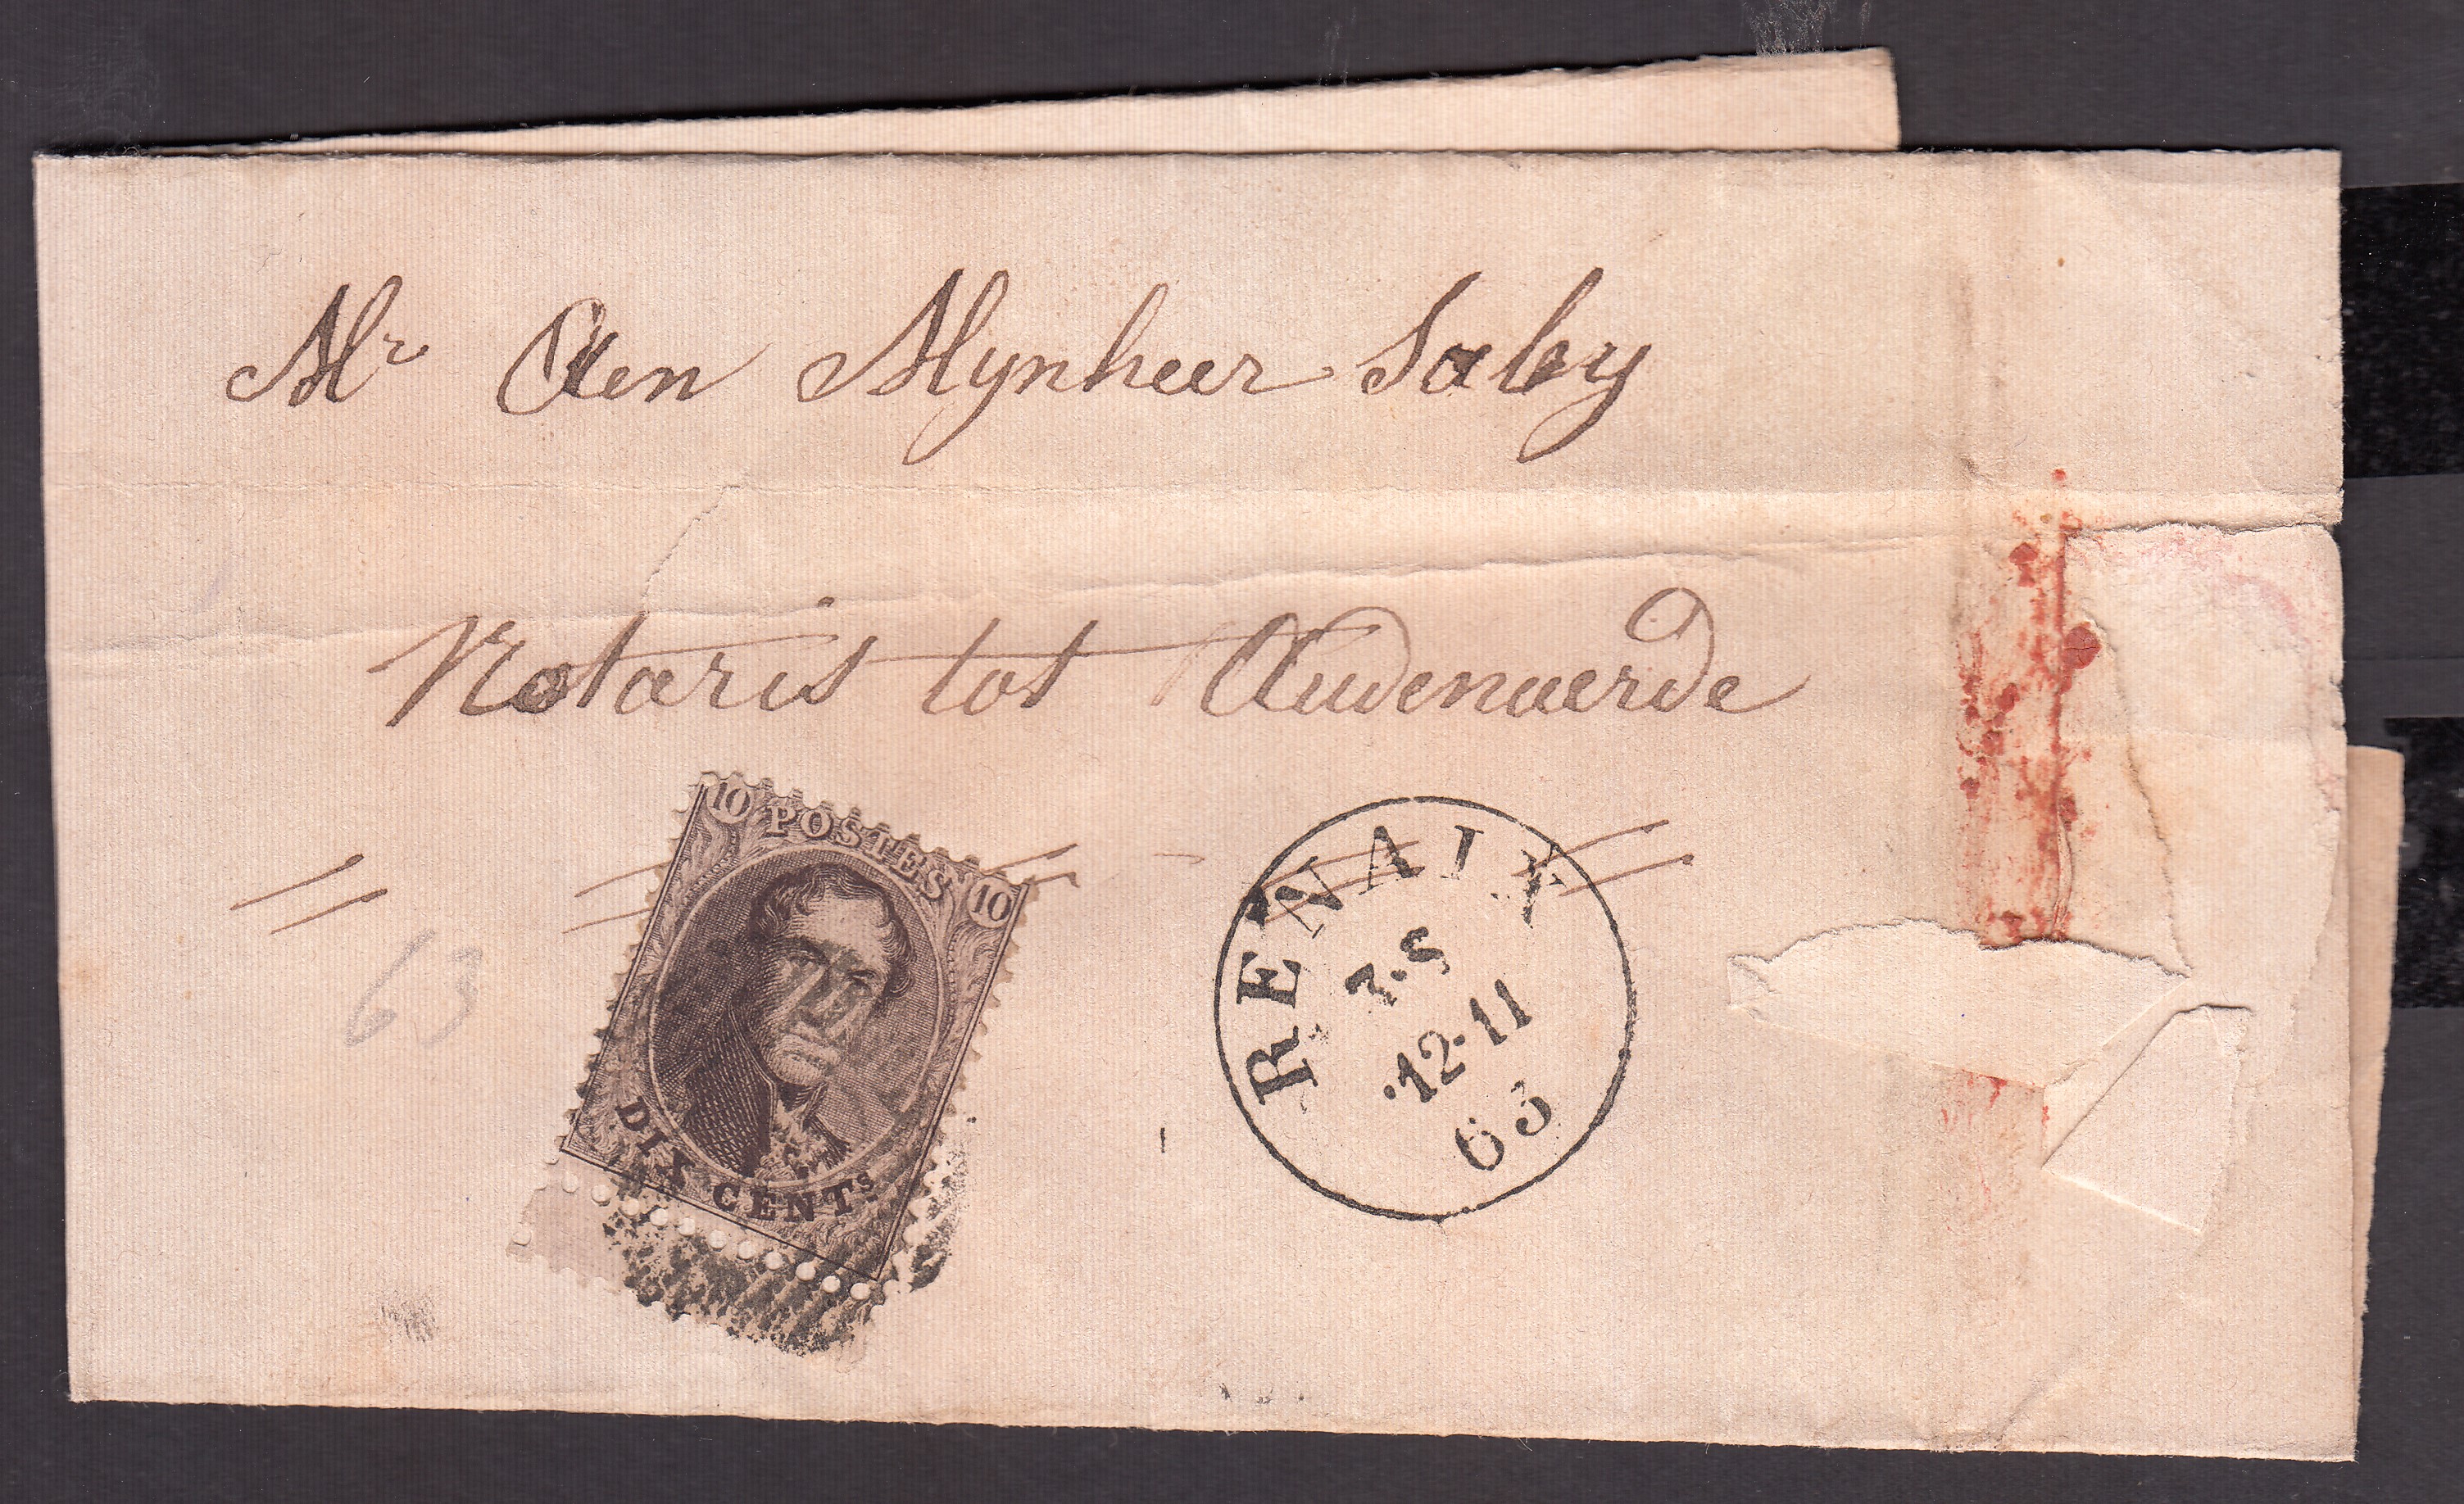 Mr Aen Mynheer Saby
Notaris tot Audenaerde
10 POSTES 10
DIX CENTS
RENAIX
7·S
12·11
63
63